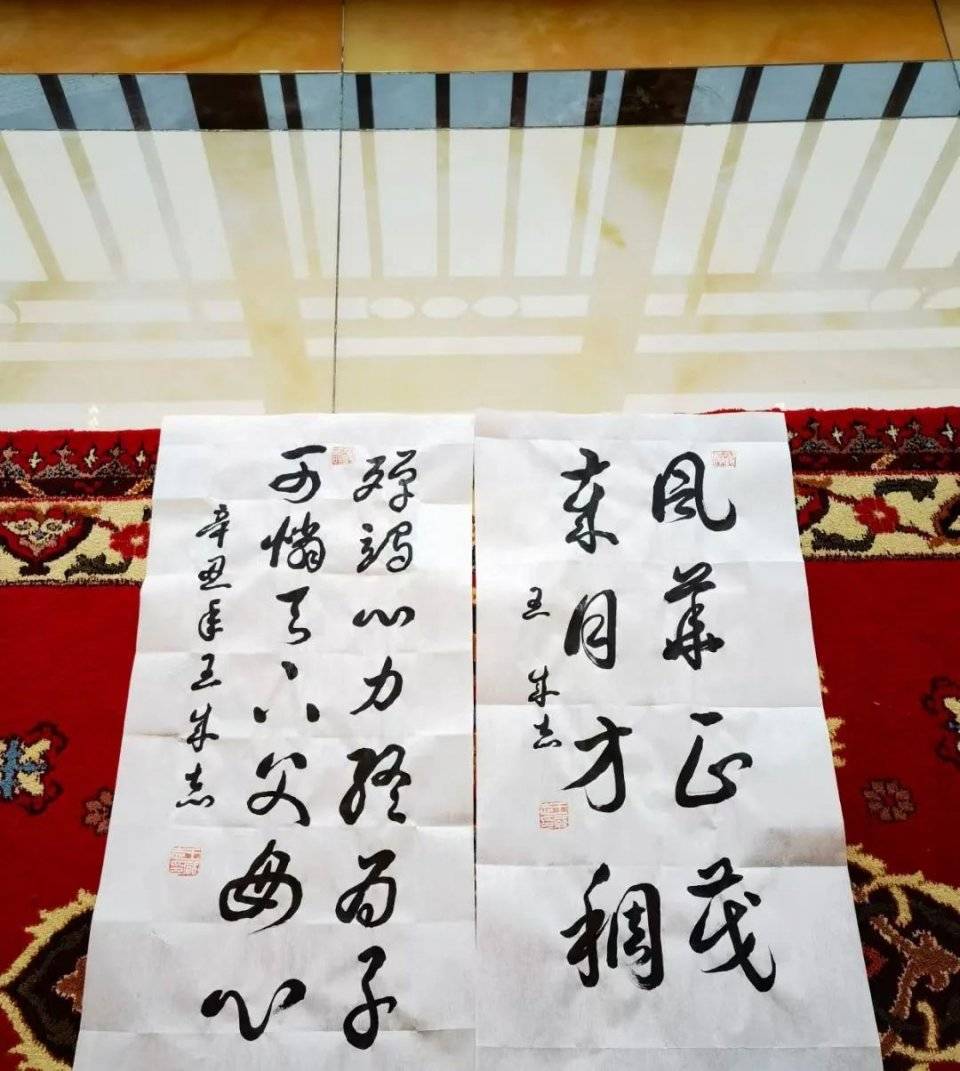 風華正茂
歲月方稠
王成志
殫竭心力終為子
可憐天下父母心
辛丑年王成志